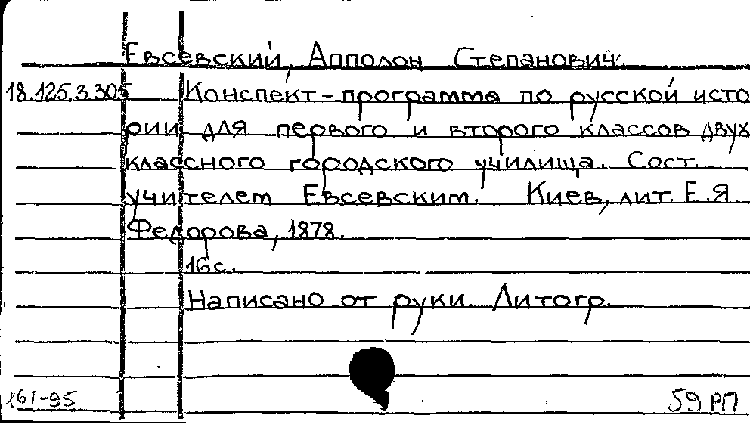 Евсевский, Апполон Степанович.
18.125.3.305 Конспект-программа по русской исто
рии для первого и второго классов двух
классного городского училища. Сост.
учителем Евсевским. Киев, лит. Е.Я.
Федорова, 1878.
16с.
Написано от руки. Литогр.
161-95 59 РП